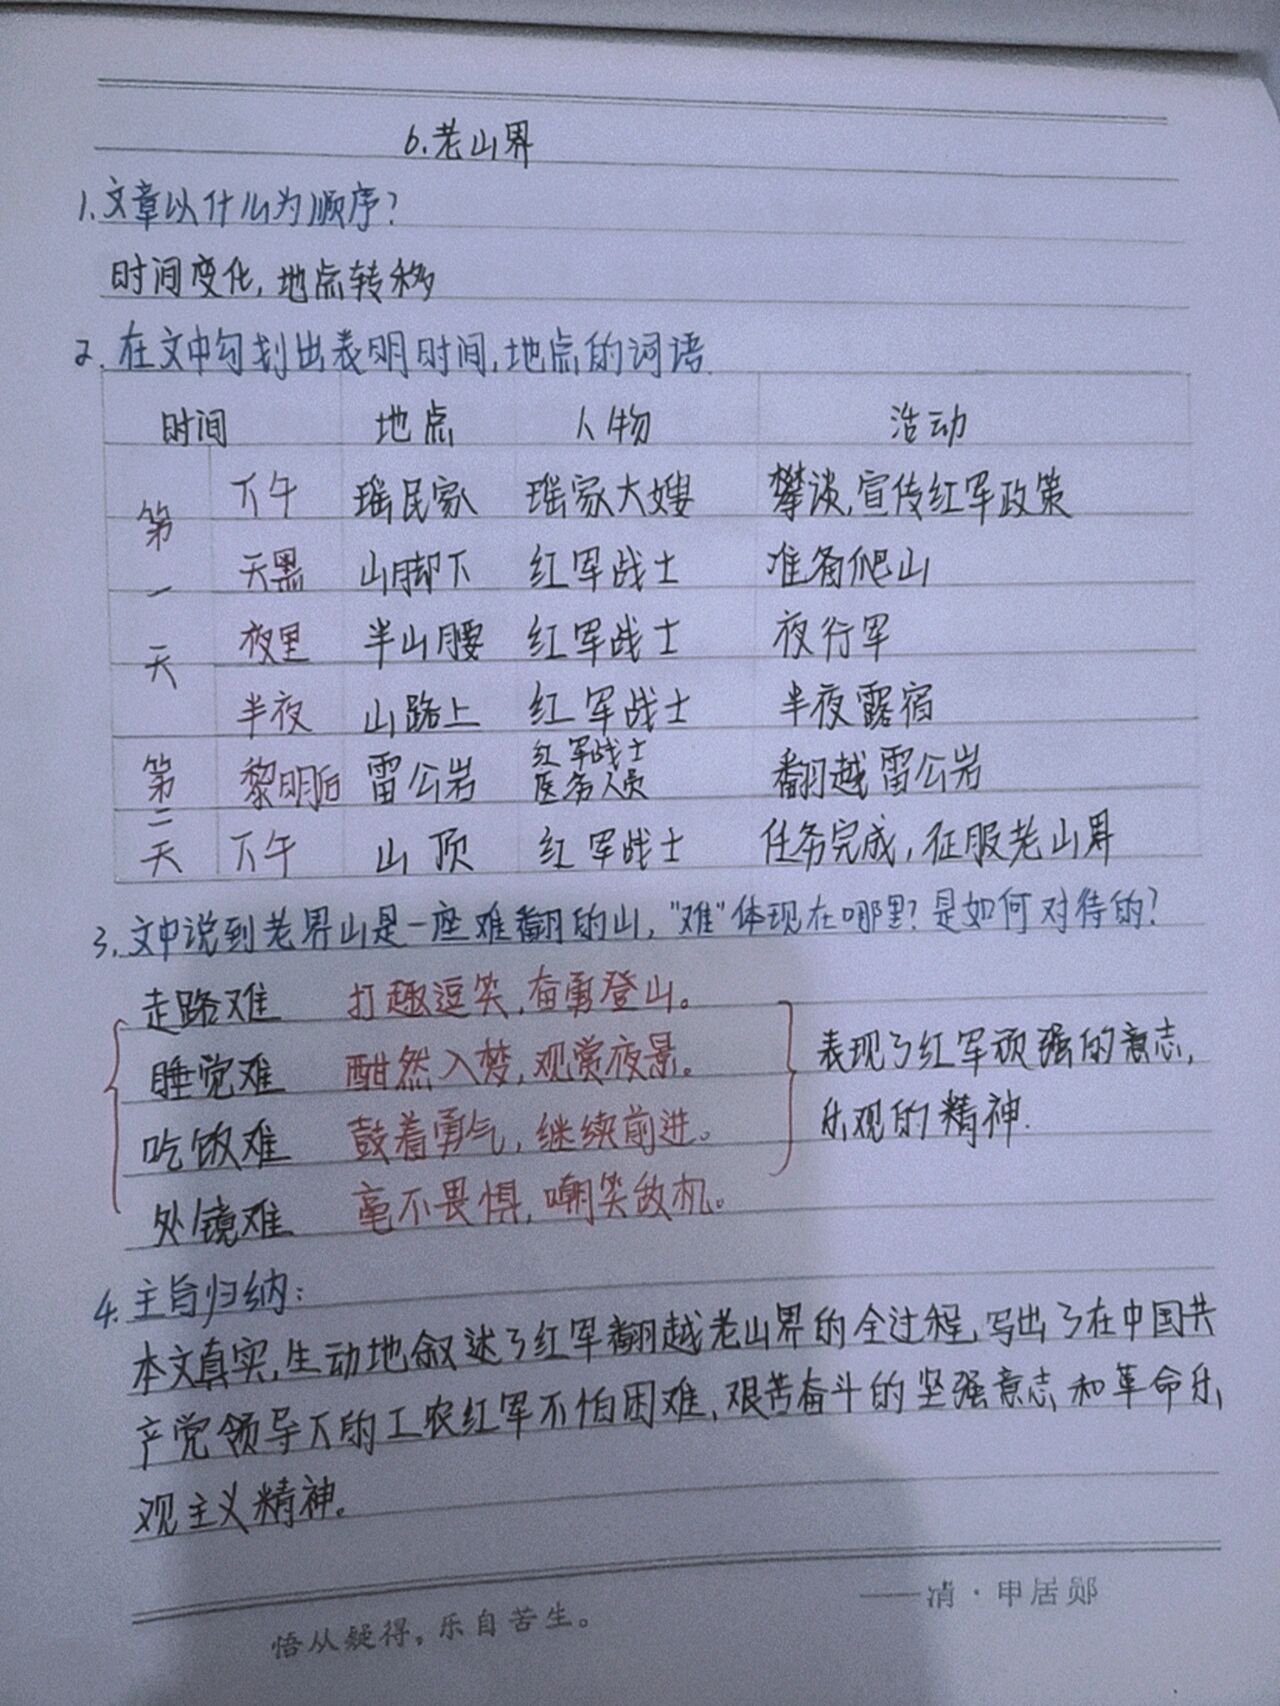 6.老山界
1.文章以什么为顺序?
时间变化,地点转移
2.在文中勾划出表明时间,地点的词语.
时间 地点 人物 活动
第一天 下午 瑶民家 瑶家大嫂 攀谈,宣传红军政策
天黑 山脚下 红军战士 准备爬山
夜里 半山腰 红军战士 夜行军
半夜 山路上 红军战士 半夜露宿
第二天 黎明后 雷公岩 红军战士 医务人员 翻越雷公岩
下午 山顶 红军战士 任务完成,征服老山界
3.文中说到老界山是一座难翻的山,"难"体现在哪里?是如何对待的?
走路难 打趣逗笑,奋勇登山。
睡觉难 酣然入梦,观赏夜景。
吃饭难 鼓着勇气,继续前进。
处镜难 毫不畏惧,嘲笑敌机。
表现了红军顽强的意志,
乐观的精神.
4.主旨归纳:
本文真实,生动地叙述了红军翻越老山界的全过程,写出了在中国共
产党领导下的工农红军不怕困难,艰苦奋斗的坚强意志和革命乐
观主义精神。
——清·申居郧
悟从疑得,乐自苦生。